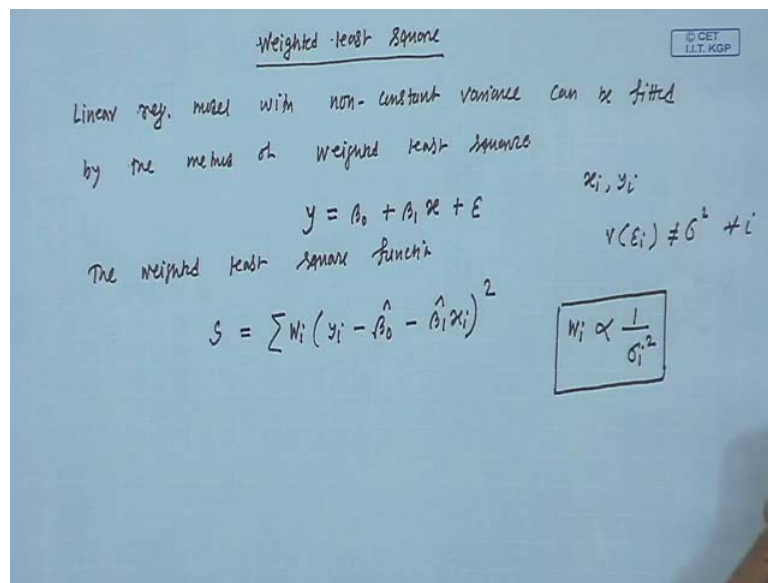 Weighted least square
© CET
I.I.T. KGP
Linear reg. model with non-constant variance can be fitted
by the method of weighted least square
xᵢ, yᵢ
y = β₀ + β₁x + ε
V(εᵢ) ≠ σ² ∀ i
The weighted least square function
S = ∑ Wᵢ (yᵢ - β̂₀ - β̂₁xᵢ)²
Wᵢ ∝ 1/σᵢ²